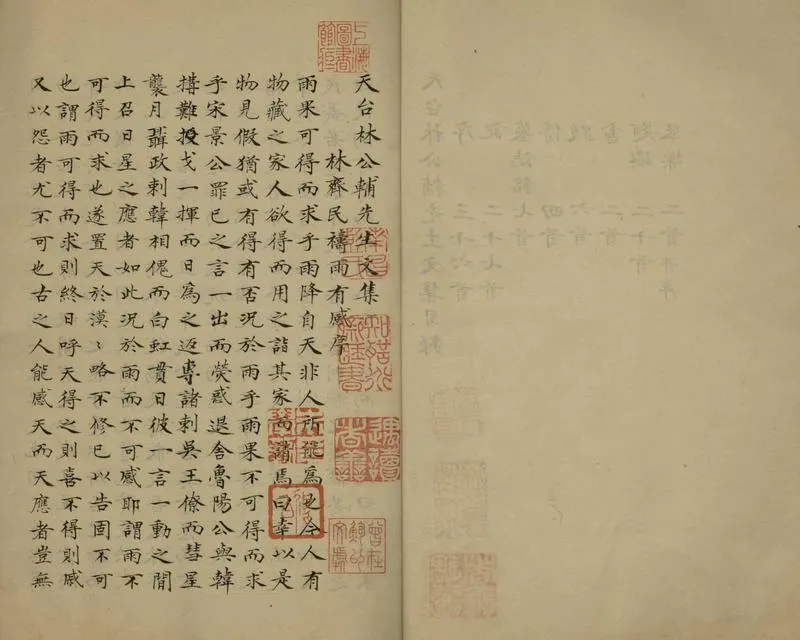 上海圖書館藏
天台林公輔先生文集
林齊民禱雨有感序
雨果可得而求乎雨降自天非人所能為也今人有
物藏之家人欲得而用之詣其家而請焉曰幸以是
物見假猶或有得有否況於雨乎雨果不可得而求
乎宋景公罪已之言一出而熒惑退舍魯陽公與韓
搆難援戈一揮而日為之返專諸刺吳王僚而彗星
襲月聶政刺韓相傀而白虹貫日彼一言一動之間
上召日星之應者如此況於雨而不可感耶謂雨不
可得而求也遂置天於漠〻略不修已以告固不可
也謂雨可得而求則終日呼天得之則喜不得則戚
又以怨者尤不可也古之人能感天而天應者豈無
遇讀者善